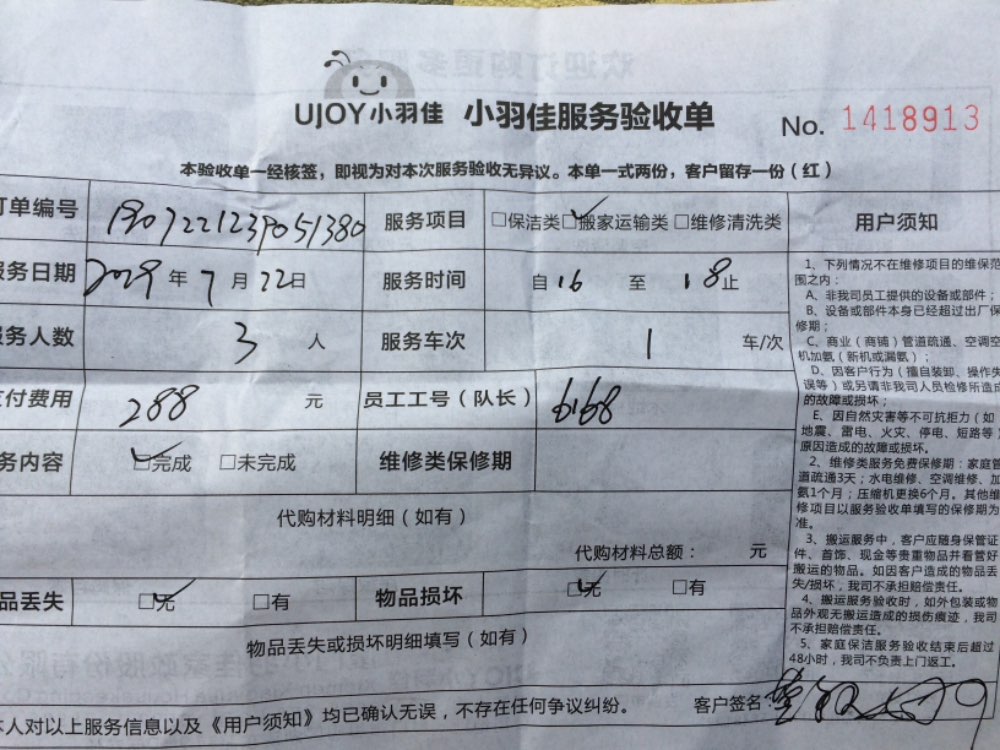 UJOY小羽佳 小羽佳服务验收单 No. 1418913
本验收单一经核签，即视为对本次服务验收无异议。本单一式两份，客户留存一份（红）
订单编号 服务项目 □保洁类 ☑搬家运输类 □维修清洗类 用户须知
务日期 2019年7月22日 服务时间 自16至18止
务人数 3 人 服务车次 1 车/次
付费用 288 元 员工工号（队长） 6168
务内容 ☑完成 □未完成 维修类保修期
代购材料明细（如有）
代购材料总额： 元
品丢失 ☑无 □有 物品损坏 ☑无 □有
物品丢失或损坏明细填写（如有）
本人对以上服务信息以及《用户须知》均已确认无误，不存在任何争议纠纷。 客户签名：
1、下列情况不在维修项目的维保范
围之内：
A、非我司员工提供的设备或部件；
B、设备或部件本身已经超过出厂保
修期；
C、商业（商铺）管道疏通、空调空
机加氨（新机或漏氨）；
D、因客户行为（擅自装卸、操作失
误等）或另请非我司人员检修所造成
的故障或损坏；
E、因自然灾害等不可抗拒力（如
地震、雷电、火灾、停电、短路等）
原因造成的故障或损坏。
2、维修类服务免费保修期：家庭管
道疏通3天；水电维修、空调维修、加
氨1个月；压缩机更换6个月。其他维
修项目以服务验收单填写的保修期为
准。
3、搬运服务中，客户应随身保管证
件、首饰、现金等贵重物品并看管好
搬运的物品。如因客户造成的物品丢
失/损坏，我司不承担赔偿责任。
4、搬运服务验收时，如外包装或物
品外观无搬运造成的损伤痕迹，我司
不承担赔偿责任。
5、家庭保洁服务验收结束后超过
48小时，我司不负责上门返工。